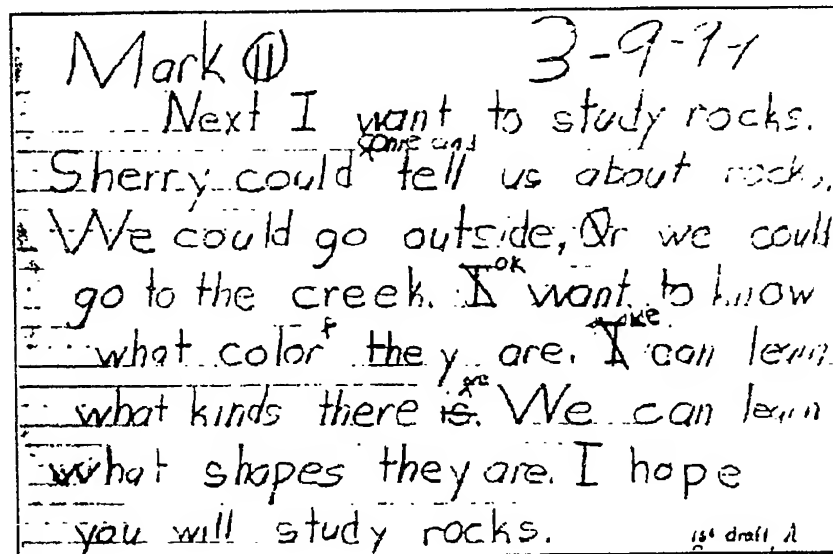 Mark 11 3-9-94
Next I want to study rocks.
come and
Sherry could tell us about rocks.
We could go outside, Or we could
go to the creek. I ok want to know
what color they are. I can learn
what kinds there is. are We can learn
what shapes they are. I hope
you will study rocks. 1st draft